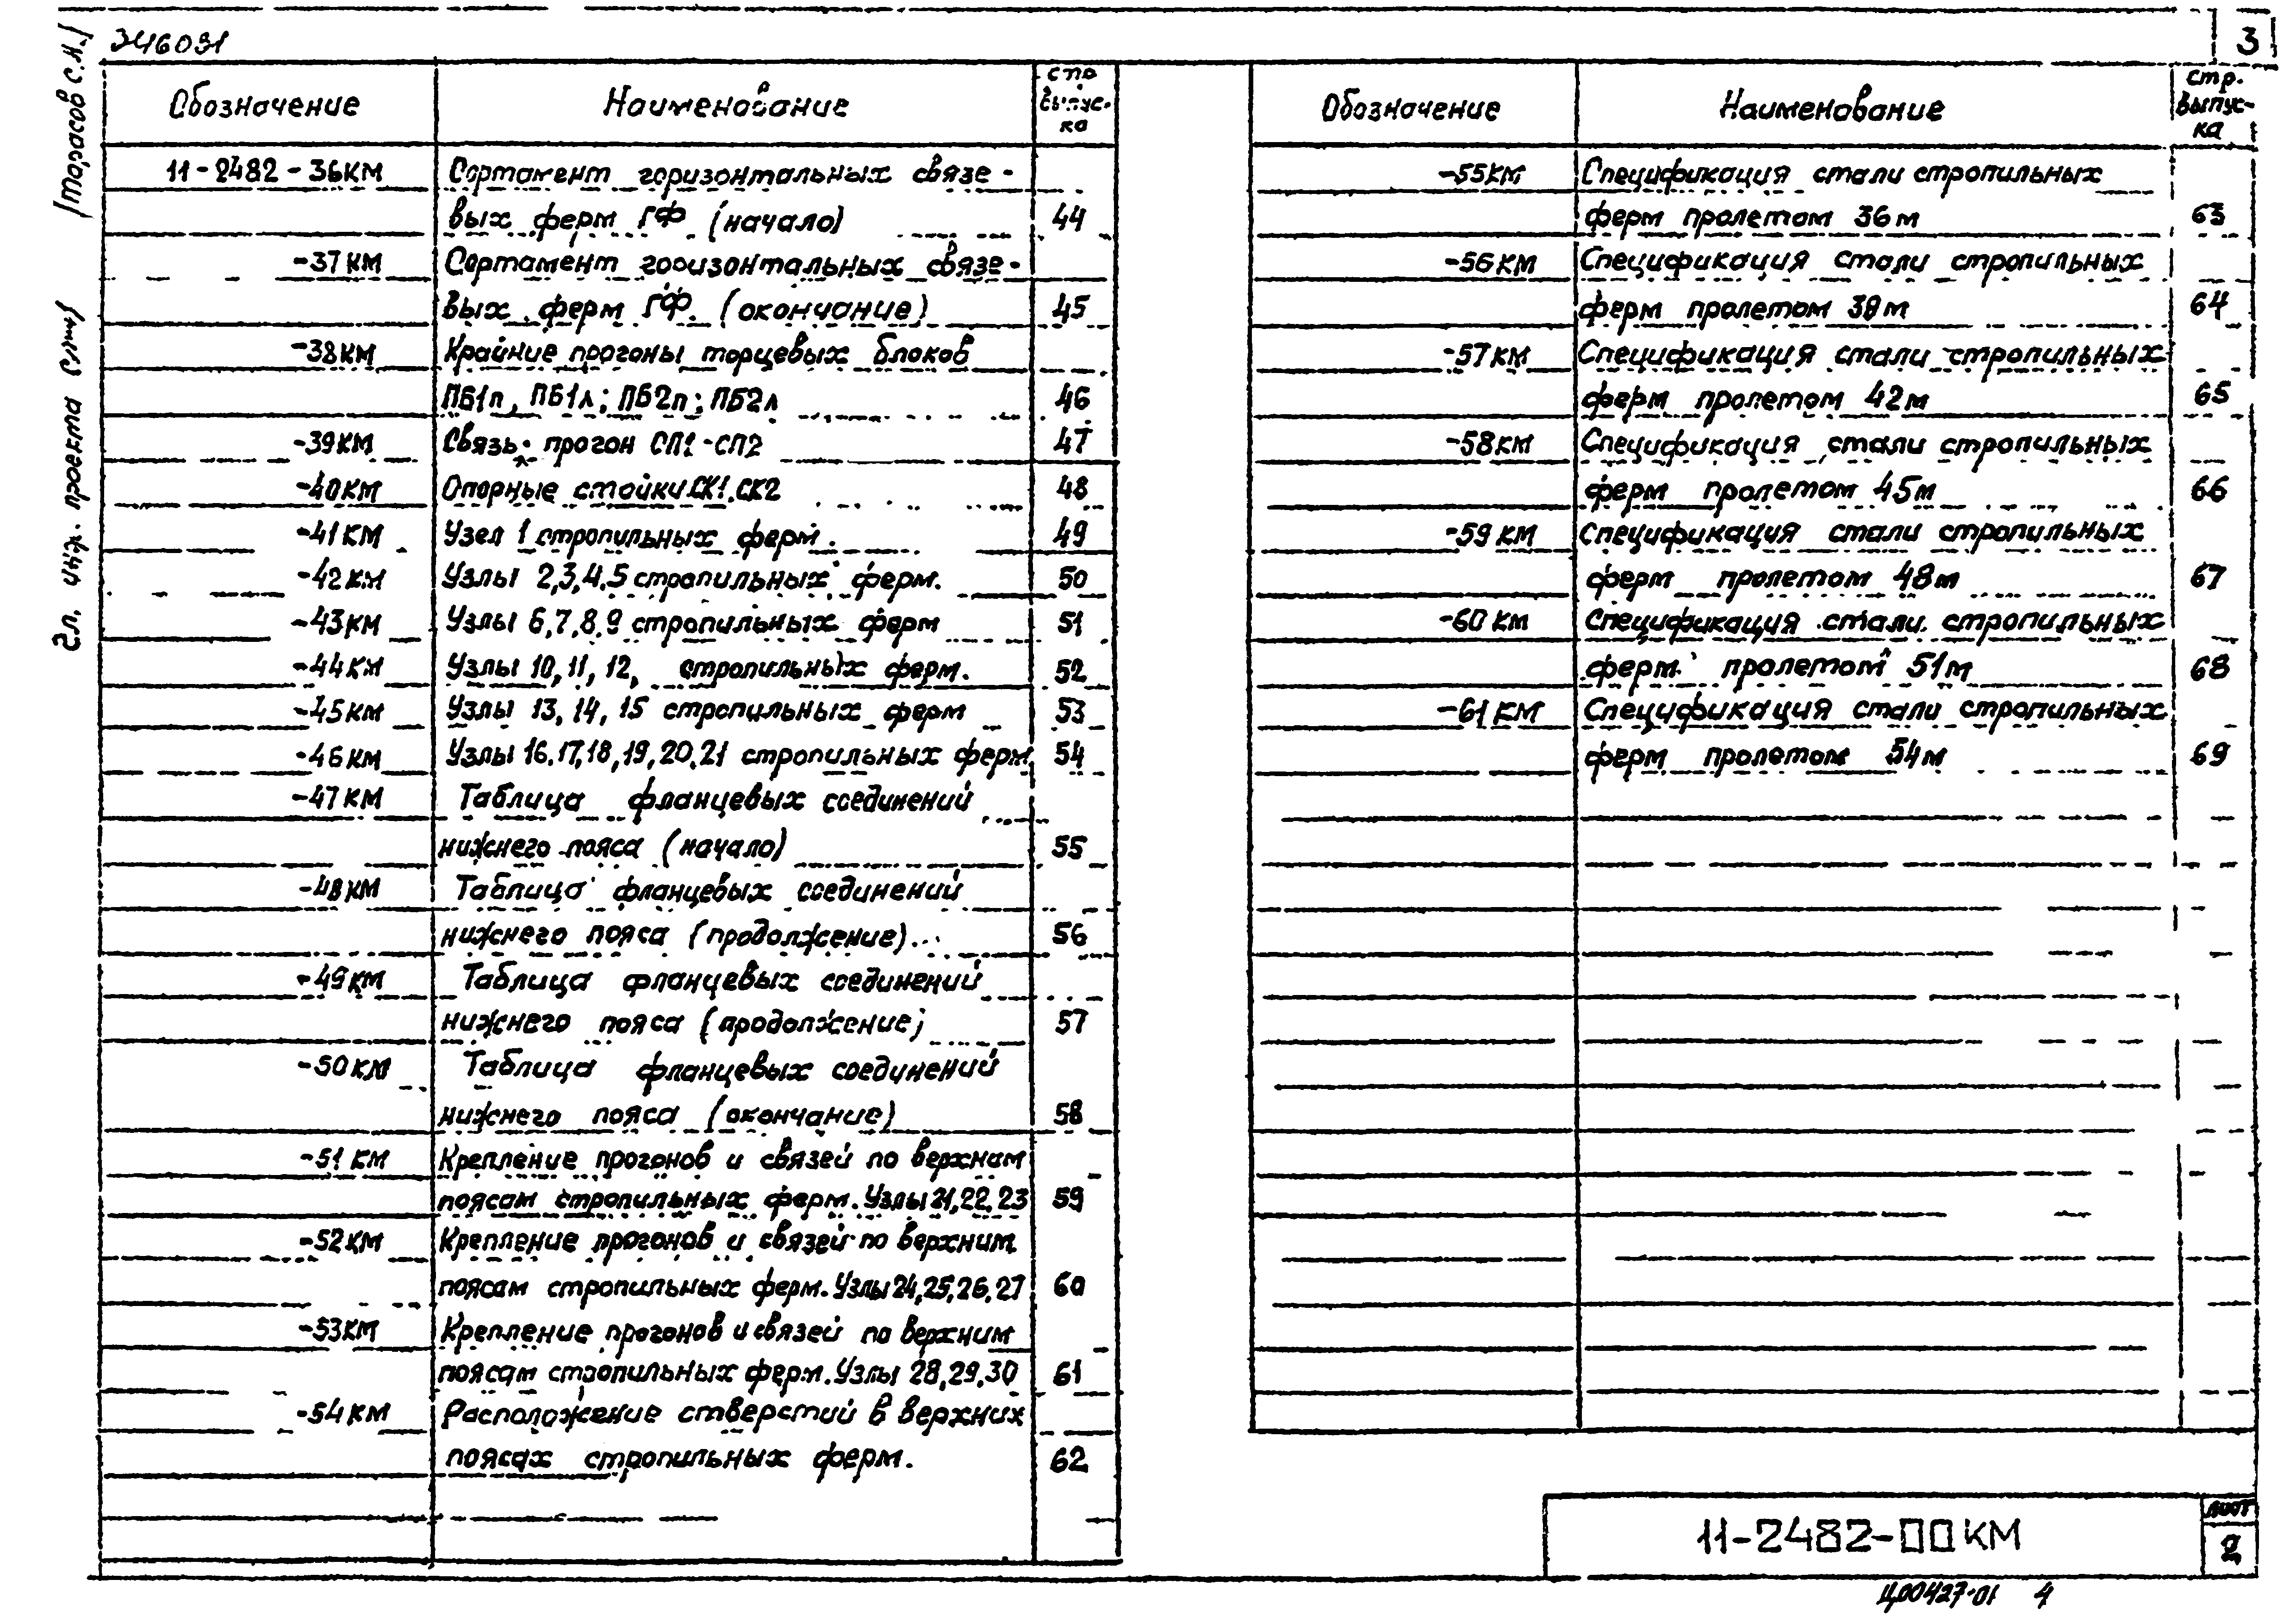 346031
3
/Тарасов С.М./
Гл. инж. проекта
Обозначение Наименование стр. выпус-
ка
11-2482-36КМ Сортамент горизонтальных связе-
вых ферм ГФ (начало) 44
-37КМ Сортамент горизонтальных связе-
вых ферм ГФ. (окончание) 45
-38КМ Крайние прогоны торцевых блоков
ПБ1п, ПБ1л; ПБ2п; ПБ2л 46
-39КМ Связь-прогон СП1-СП2 47
-40КМ Опорные стойки СК1, СК2 48
-41КМ Узел 1 стропильных ферм. 49
-42КМ Узлы 2,3,4,5 стропильных ферм. 50
-43КМ Узлы 6,7,8,9 стропильных ферм 51
-44КМ Узлы 10, 11, 12, стропильных ферм. 52
-45КМ Узлы 13, 14, 15 стропильных ферм 53
-46КМ Узлы 16,17,18,19,20,21 стропильных ферм 54
-47КМ Таблица фланцевых соединений
нижнего пояса (начало) 55
-48КМ Таблица фланцевых соединений
нижнего пояса (продолжение) 56
-49КМ Таблица фланцевых соединений
нижнего пояса (продолжение) 57
-50КМ Таблица фланцевых соединений
нижнего пояса (окончание) 58
-51КМ Крепление прогонов и связей по верхним
поясам стропильных ферм. Узлы 21,22,23 59
-52КМ Крепление прогонов и связей по верхним
поясам стропильных ферм. Узлы 24,25,26,27 60
-53КМ Крепление прогонов и связей по верхним
поясам стропильных ферм. Узлы 28,29,30 61
-54КМ Расположение отверстий в верхних
поясах стропильных ферм. 62
Обозначение Наименование стр.
выпус-
ка
-55КМ Спецификация стали стропильных
ферм пролетом 36м 63
-56КМ Спецификация стали стропильных
ферм пролетом 39м 64
-57КМ Спецификация стали стропильных
ферм пролетом 42м 65
-58КМ Спецификация стали стропильных
ферм пролетом 45м 66
-59КМ Спецификация стали стропильных
ферм пролетом 48м 67
-60КМ Спецификация стали стропильных
ферм пролетом 51м 68
-61КМ Спецификация стали стропильных
ферм пролетом 54м 69
11-2482-00КМ
лист
2
Ц00427-01 4